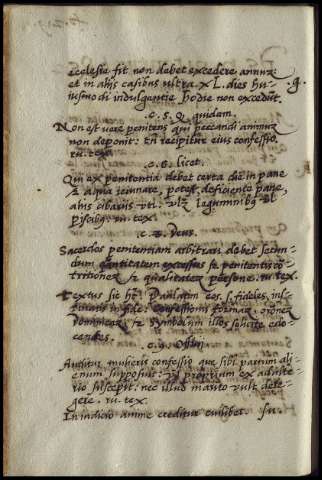 ecclesia fit non debet excedere annuz
et in aliis casibus ultra. XL. dies hu=
iusmodi indulgentie hodie non excedut.
.c. 5. Q. quidam.
Non est vere penitens qui peccandi animuz
non deponit: recipitur eius confessio.
ru. tex.
.c. 6. licet.
Qui ex penitentia debet certa die in pane
z aqua ieiunare, potest deficiente pane,
aliis cibariis uti: leguminibq vl
piscibq. ru. tex.
.c. 8. Deus.
Sacerdos penitentiam arbitrari debet secun=
dum quantitatem excessus penitentis co=
tritionez z qualitatez persone. ru. tex.
Textus sic Paulatim eos. s. fideles, ins=
truatis in fide: confessionis formaz: oronez
dominicaz z Symbolum illos solicite edo=
centes.
.c. 9. Officij.
Auditur mulieris confessio que sibi partum ali=
enum supposuit: vl proprium ex adulte=
rio suscepit: nec illud marito vult dete=
gere. ru. tex.
In iudicio anime creditur cuilibet.